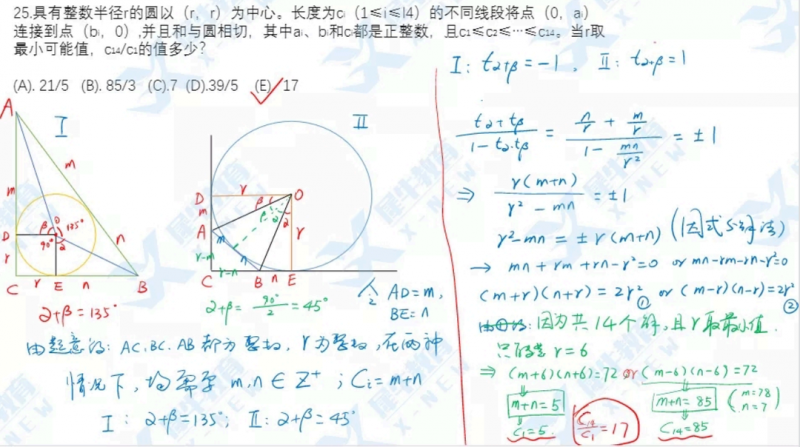 25.具有整数半径r的圆以（r，r）为中心。长度为cᵢ（1≤i≤14）的不同线段将点（0，aᵢ）
连接到点（bᵢ，0）,并且和与圆相切，其中aᵢ、bᵢ和cᵢ都是正整数，且c₁≤c₂≤⋯≤c₁₄。当r取
最小可能值，c₁₄/c₁的值多少？
(A). 21/5 (B). 85/3 (C).7 (D).39/5 (E). 17
I
A
m
m
D
β
O
135°
90°
α
n
r
C
r
E
n
B
α+β=135°
II
D
r
O
m
β
β
α
α
A
m
r
r-m
r-n
n
C
B
n
E
α+β= 90°/2 =45°
令 AD=m,
BE=n
由题意的: AC.BC.AB 都为整数, r为整数, 在两种
情况下, 均需要 m,n∈Z⁺ ; Cᵢ=m+n
I : α+β=135°; II: α+β=45°
I: tα+β=-1 。 II: tα+β=1
(tα+tβ)/(1-tα·tβ) = (n/r + m/r)/(1 - mn/r²) = ±1
⇒ r(m+n)/(r²-mn) = ±1
r²-mn=±r(m+n) (因式分解法)
→ mn+rm+rn-r²=0 or mn-rm-rn-r²=0
(m+r)(n+r)=2r² ① or (m-r)(n-r)=2r² ②
因为共14个解,且r取最小值.
只能是 r=6
⇒ (m+6)(n+6)=72 or (m-6)(n-6)=72
m+n=5
m+n=85
(m=78
n=7)
C₁=5.
C₁₄/C₁=17
C₁₄=85